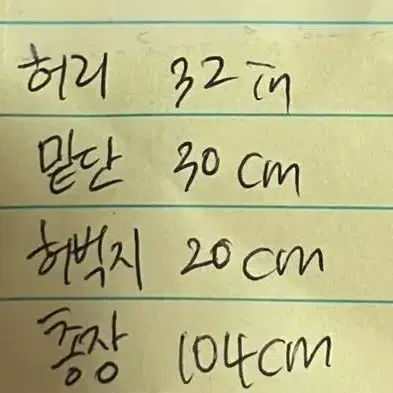 허리 32 in
밑단 30 cm
허벅지 20 cm
총장 104 cm